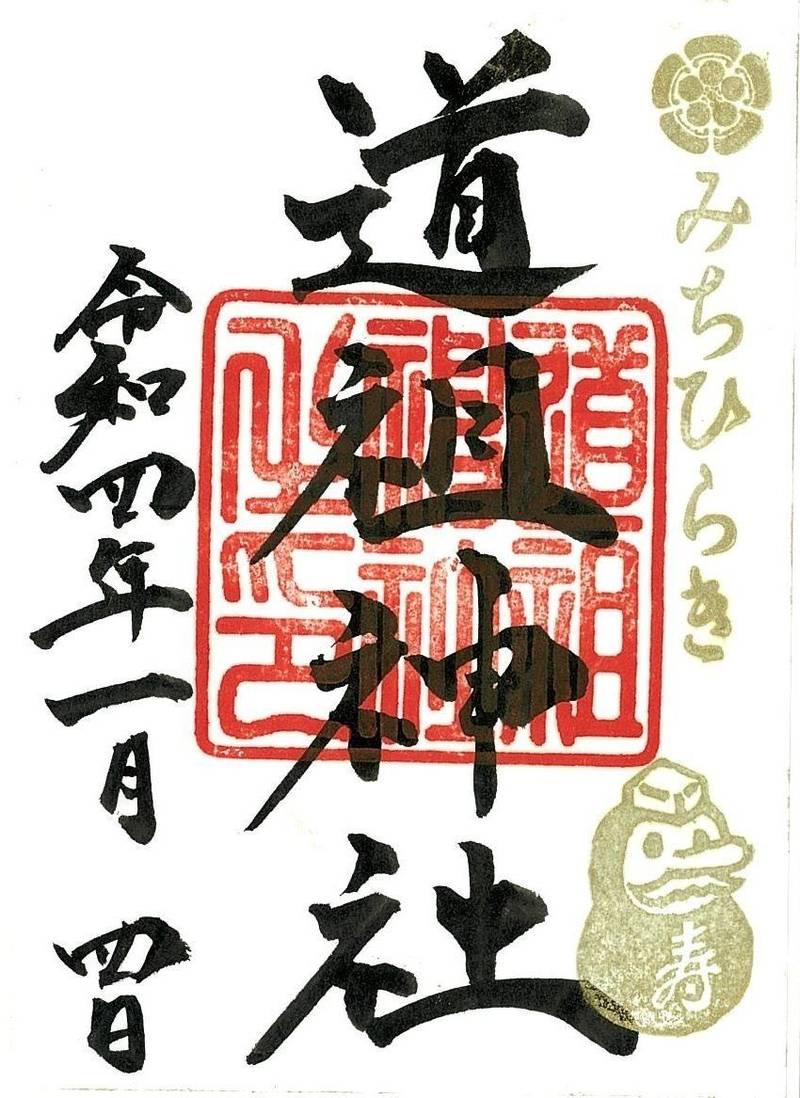 みちひらき
寿
道祖神社
道祖神社之印
令和四年一月四日